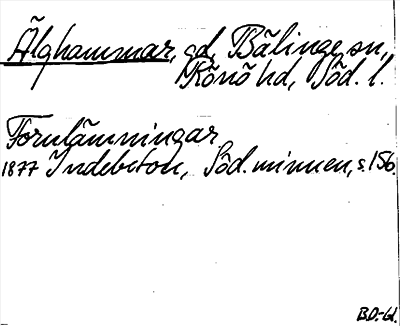 Älghammar, gd, Bälinge sn,
Rönö hd, Söd. l.
Fornlämningar
1877 Indebetou, Söd. minnen, s. 156.
B.D.-Gl.